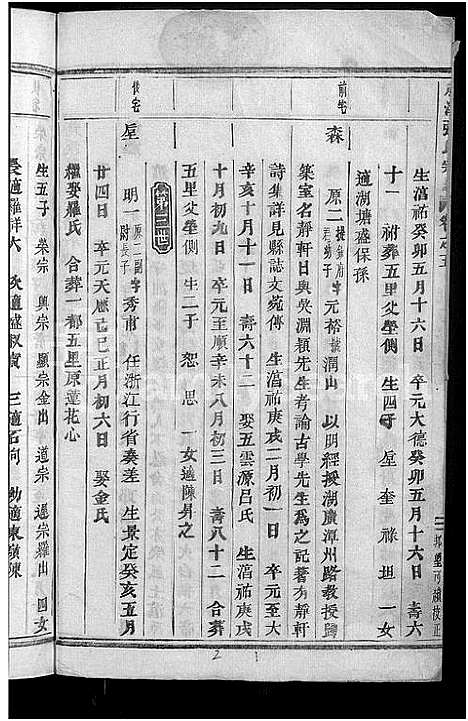 生淳祐癸卯五月十六日 卒元大德癸卯五月十六日 壽六
十一 祔葬五里父塋側 生四子 垕 奎 祿 坦 一女
適湖塘盛保孫
前宅
森 原二 字元裕 號潤山 以明經授湖廣潭州路教授歸
築室名靜軒日與吳淵穎先生考論古學先生爲之記著有靜軒
詩集詳見縣誌文苑傳 生淳祐庚戌二月初一日 卒元至大
辛亥十月十一日 壽六十二 娶五雲源呂氏 生淳祐庚戌
十月初九日 卒元至順辛未八月初三日 壽八十二 合葬
五里父塋側 生二子 恕 思 一女適陳昇之
第三世
後宅
垕 明一 原二嗣子 字秀甫 任浙江行省奏差 生景定癸亥五月
廿四日 卒元天歷己巳正月初六日 娶金氏
繼娶羅氏 合葬一都五里原蓮花心
生五子 榮宗 興宗 顯宗金出 道宗 宗羅出 四女
長適羅詳大 次適盛 三適石 幼適東嶺陳